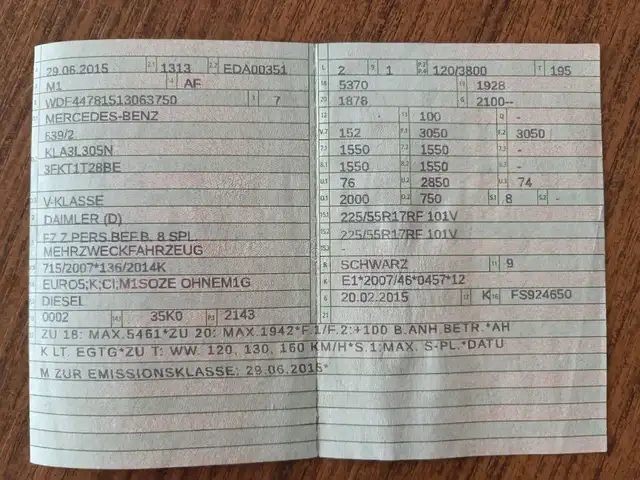 29.06.2015 2.1 1313 2.2 EDA00351
M1 AF
WDF44781513063750 3 7
MERCEDES-BENZ
639/2
KLA3L305N
3FKT1T28BE
V-KLASSE
DAIMLER (D)
FZ.Z.PERS.BEF.B. 8 SPL
MEHRZWECKFAHRZEUG
715/2007*136/2014K
EURO5;K;CI;M1SOZE OHNEM1G
DIESEL
0002 35K0 P.1 2143
L 2 9 1 P.2 P.4 120/3800 T 195
18 5370 19 1928
20 1878 G 2100--
12 - 13 100 Q -
V.7 152 F.1 3050 F.2 3050
7.1 1550 7.2 1550 7.3 -
8.1 1550 8.2 1550 8.3 -
U.1 76 U.2 2850 U.3 74
O.1 2000 O.2 750 S.1 8 S.2 -
15.1 225/55R17RF 101V
15.2 225/55R17RF 101V
15.3 -
R SCHWARZ 11 9
K E1*2007/46*0457*12
6 20.02.2015 17 K 16 FS924650
21
ZU 18: MAX.5461*ZU 20: MAX.1942*F.1/F.2:+100 B.ANH.BETR.*AH
K LT. EGTG*ZU T: WW. 120, 130, 160 KM/H*S.1:MAX. S-PL.*DATU
M ZUR EMISSIONSKLASSE: 29.06.2015*